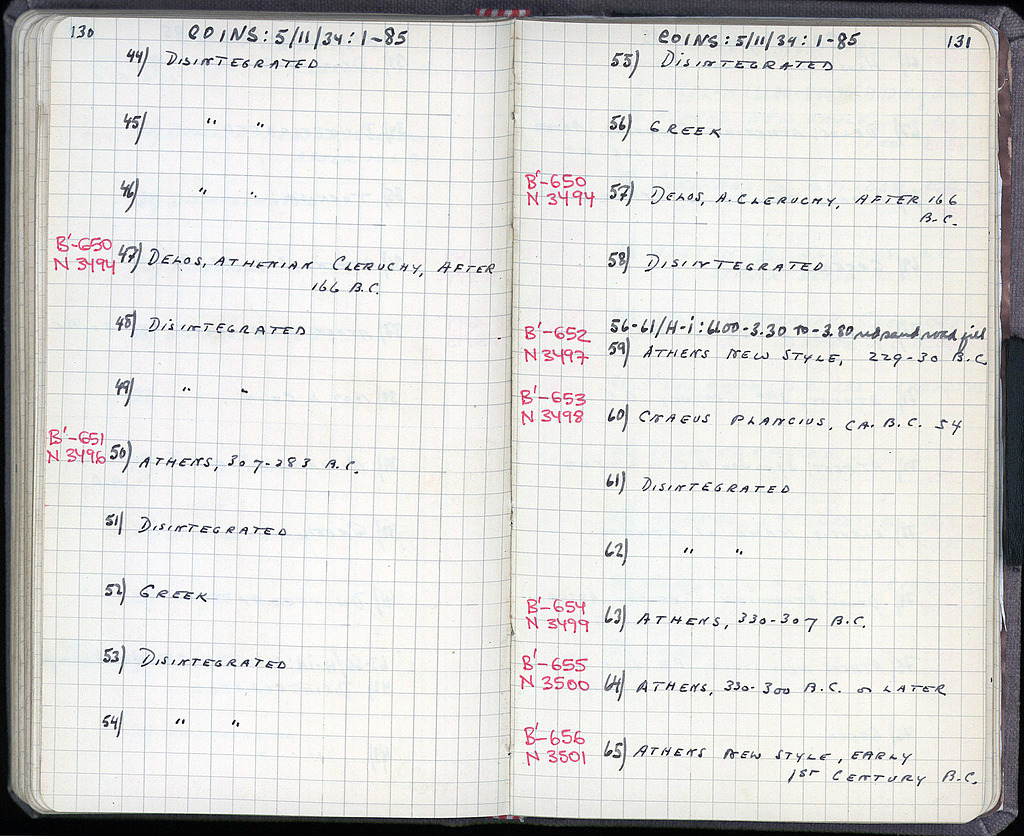 130
COINS: 5/11/34: 1-85
44) DISINTEGRATED
45) " "
46) " "
B'-650
N 3494
47) DELOS, ATHENIAN CLERUCHY, AFTER
166 B.C.
48) DISINTEGRATED
49) " "
B'-651
N 3496
50) ATHENS, 307-283 B.C.
51) DISINTEGRATED
52) GREEK
53) DISINTEGRATED
54) " "
COINS: 5/11/34: 1-85
131
55) DISINTEGRATED
56) GREEK
B'-650
N 3494
57) DELOS, A. CLERUCHY, AFTER 166
B.C.
58) DISINTEGRATED
56-61/H-i: 6600-3.30 TO -3.80 red sand road fill
B'-652
N 3497
59) ATHENS NEW STYLE, 229-30 B.C.
B'-653
N 3498
60) CNAEUS PLANCIUS, CA. B.C. 54
61) DISINTEGRATED
62) " "
B'-654
N 3499
63) ATHENS, 330-307 B.C.
B'-655
N 3500
64) ATHENS, 330-300 B.C. or LATER
B'-656
N 3501
65) ATHENS NEW STYLE, EARLY
1ST CENTURY B.C.